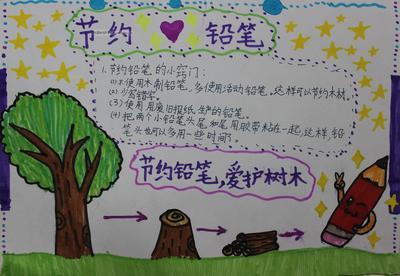 节约 铅笔
1.节约铅笔的小窍门:
(1)不使用木制铅笔,多使用活动铅笔,这样可以节约木材.
(2)少写错字。
(3)使用用废旧报纸生产的铅笔。
(4)把两个小铅笔头尾和尾用胶带粘在一起,这样,铅
笔头也可以多用一些时间了。
节约铅笔,爱护树木